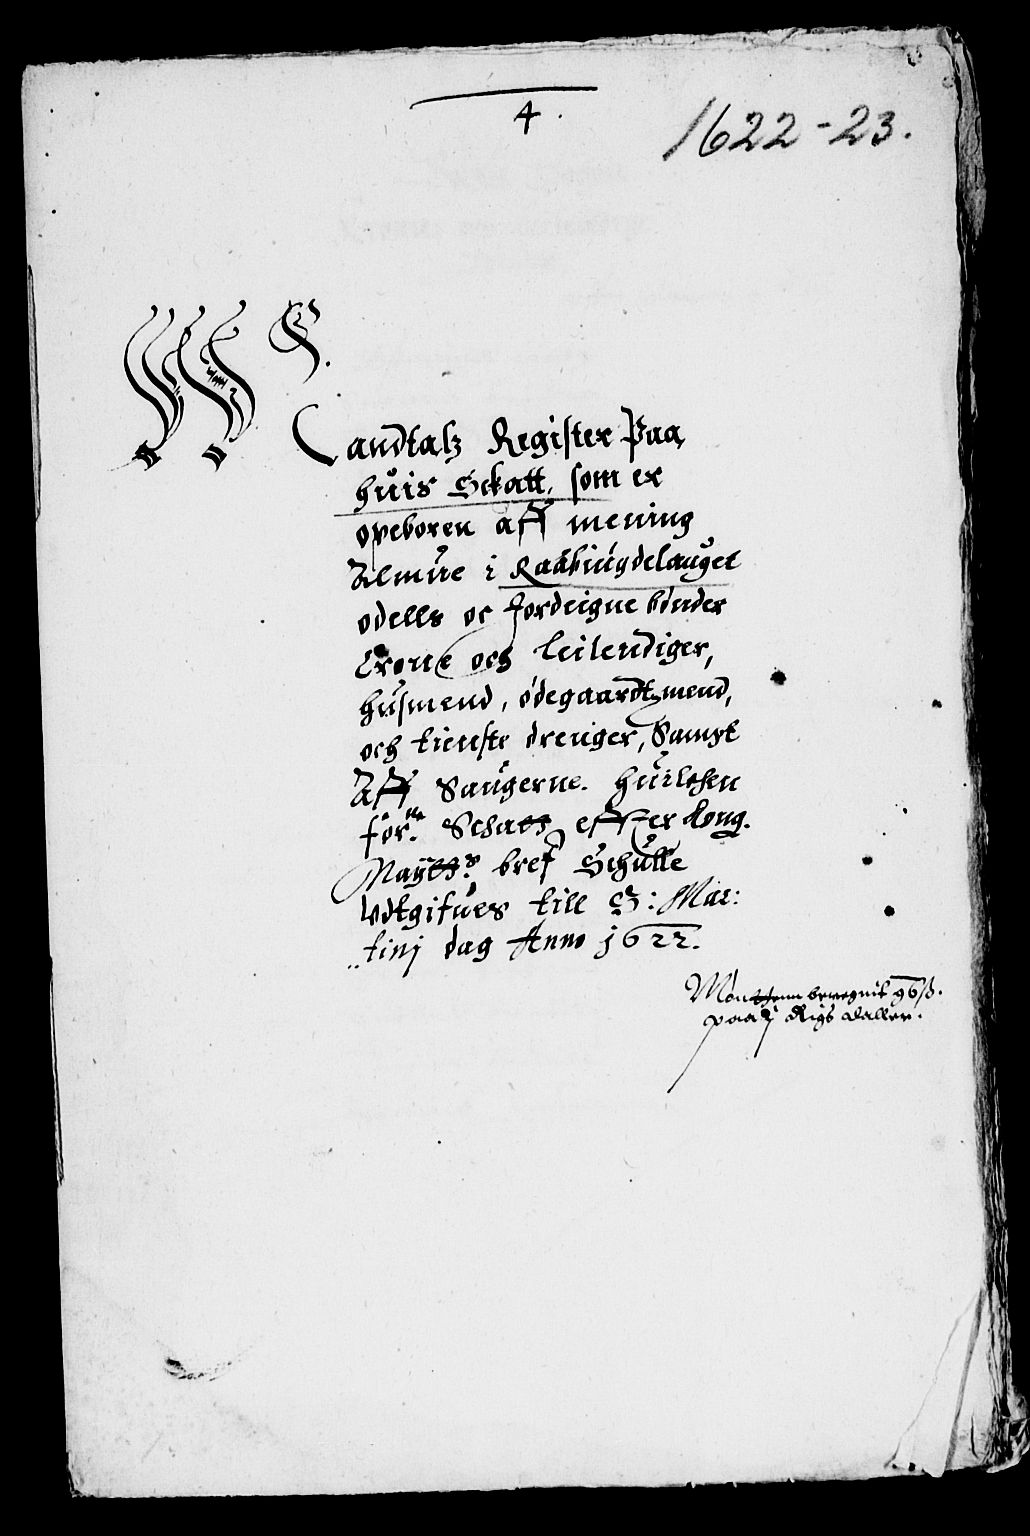 4.
1622-23.
Mandtalz Register Paa
huis Sckatt, som er
opeboren aff mening
Almue i Raabiugdelauget
odells oc Jordeigne bønder
Crone och Leilendiger,
husmend, ødegaardtzmend,
och tieniste drenger, Sampt
Aff Saugerne. huilchen
for.ne Schatt effter Kong.
Maÿtts: bref Schulle
vdtgifues till S: Mar:
tinj dag Anno 1622.
Møntthenn beregnit 96 ß.
paa j Rigs daller.